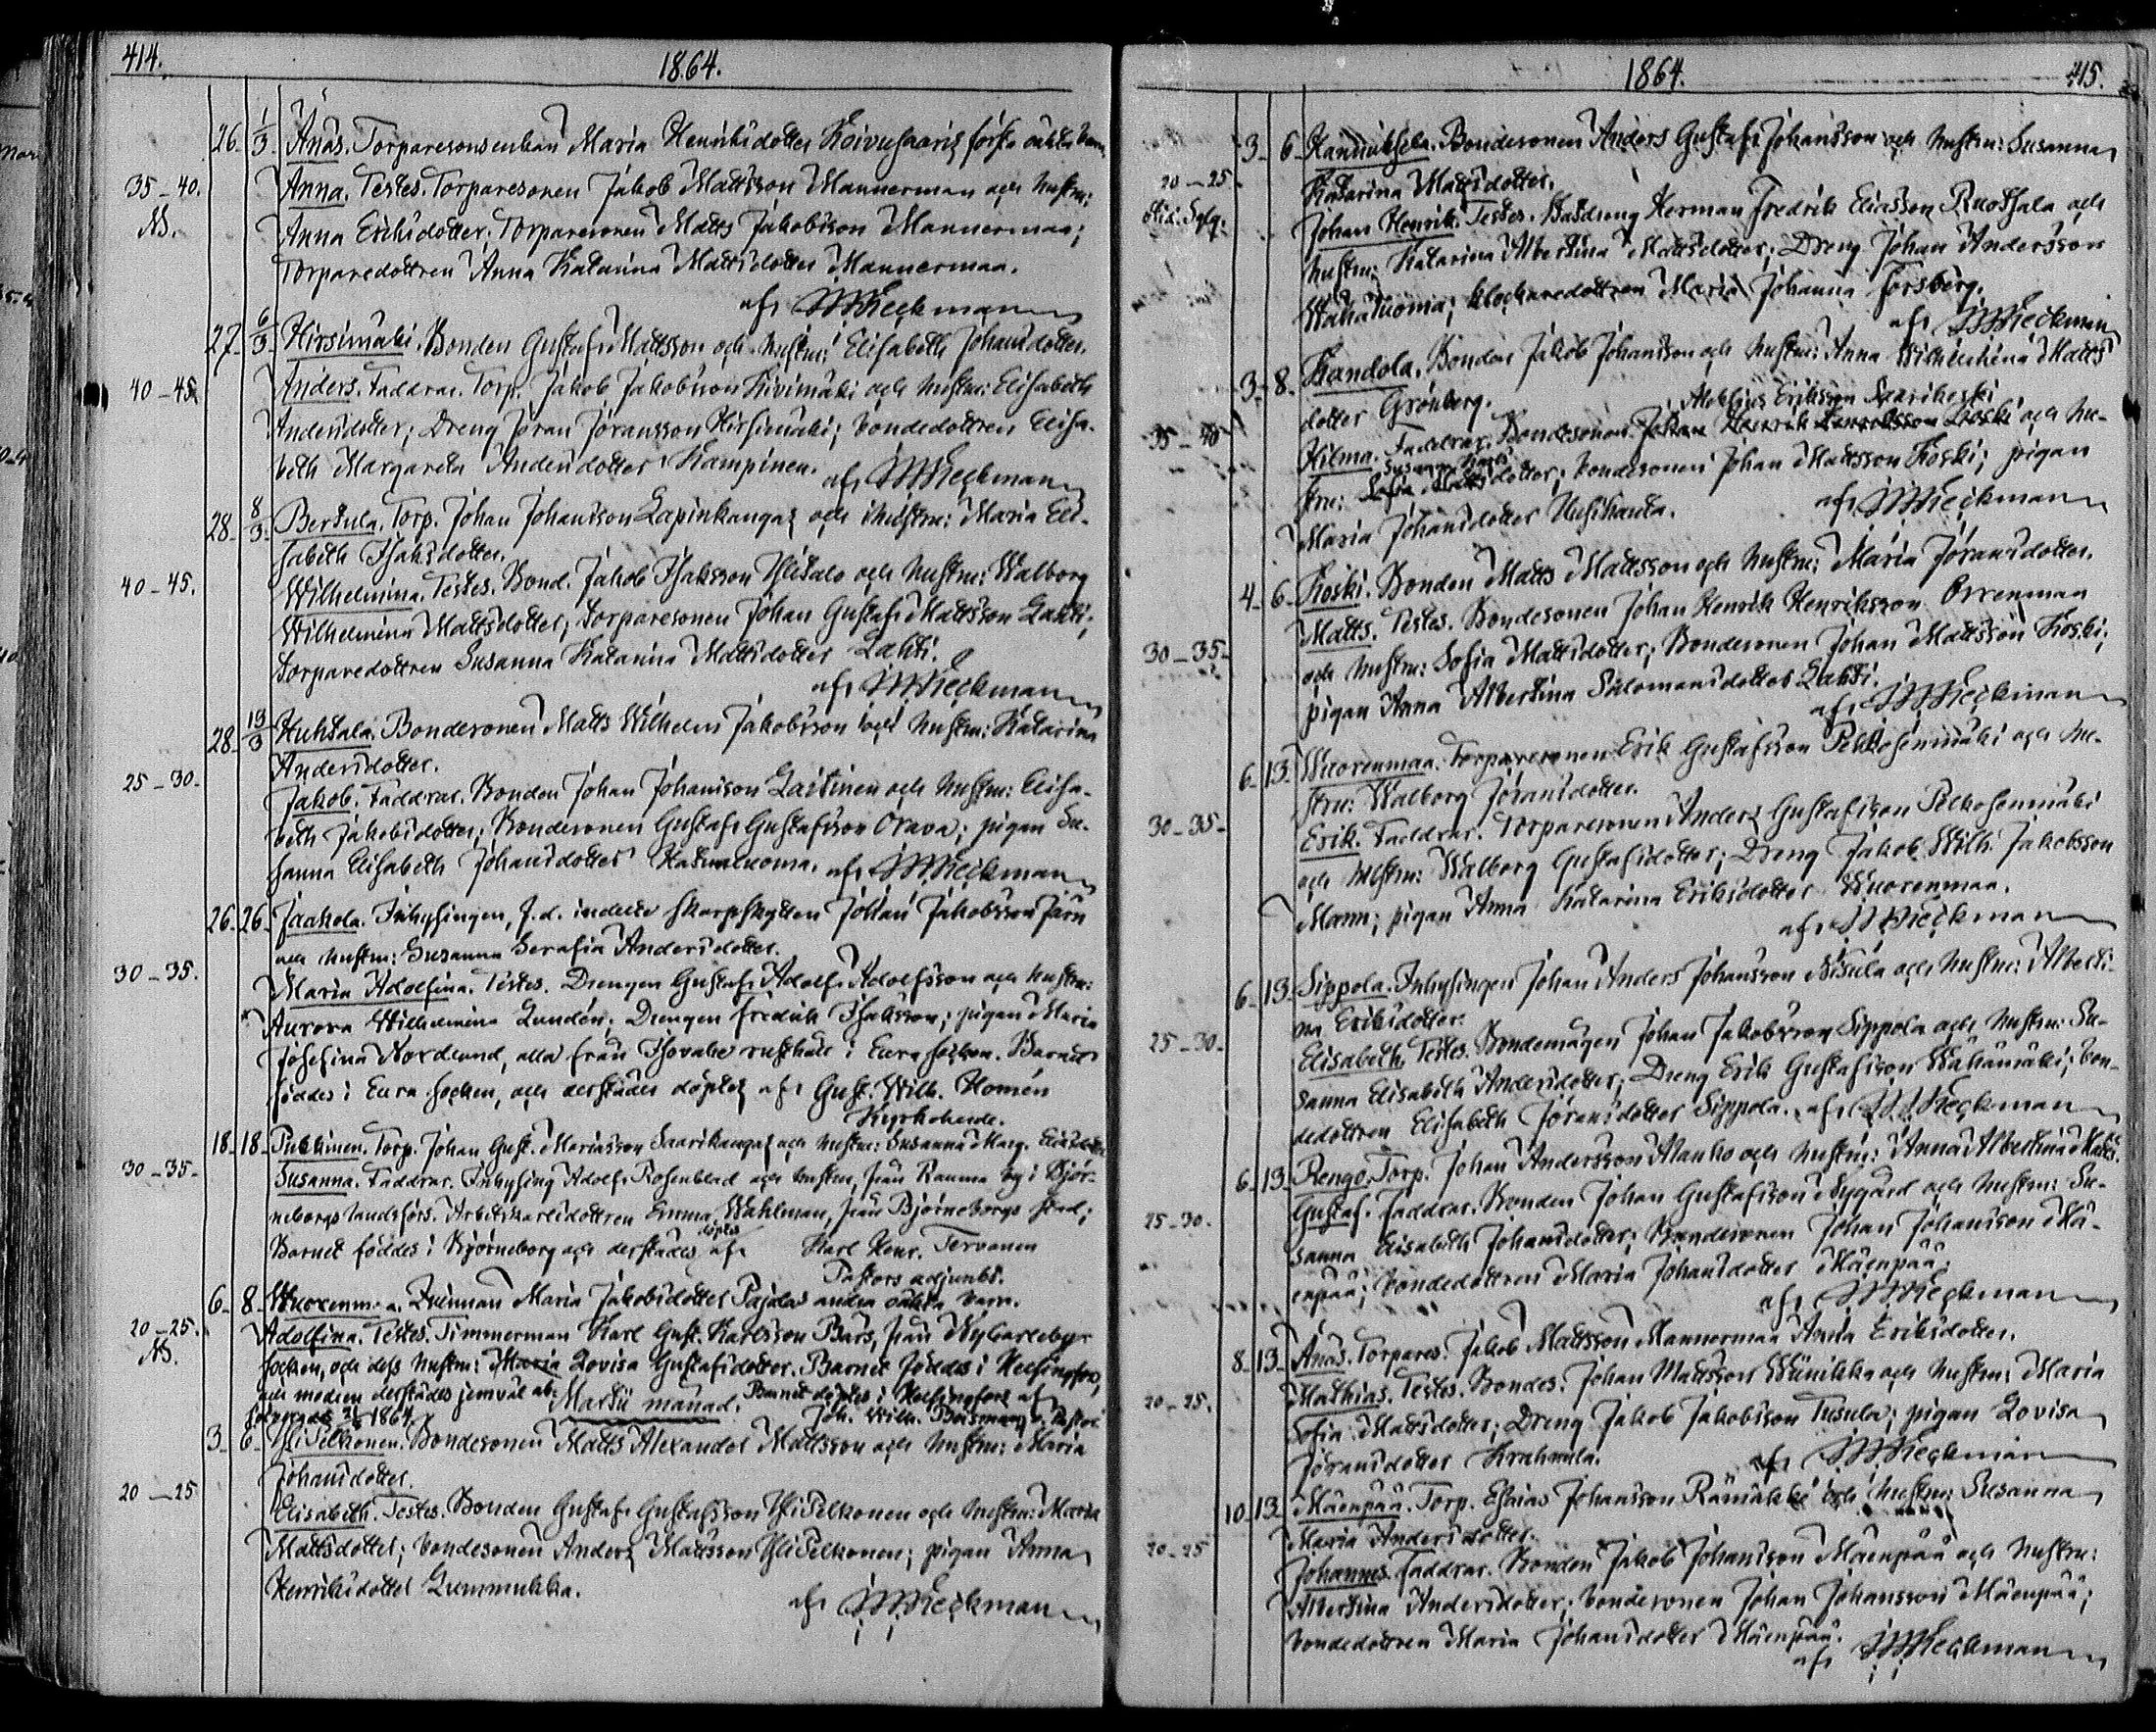 414.
1864.
26. 1/3 Ånäs. Torparesonsenkan Maria Henriksdotter Koivusaaris förste oäkta barn
35–40. Anna. Testes. Torparesonen Jakob Mattsson Mannermaa och hustru:
Anna Eriksdotter; Torparesonen Matts Jakobsson Mannermaa;
Torparedottren Anna Katarina Mattsdotter Mannermaa.
af
27. 6/3 Hirsimäki. Bonden Gustaf Mattsson och hustru: Elisabeth Johansdotter.
40–45 Anders. Faddrar. Torp. Jakob Jakobsson Kivimäki och hustru: Elisabeth
Andersdotter; Dreng Jöran Jöransson Hirsimäki; bondedottren Elisa-
beth Margareta Andersdotter Kampinen. af
28. 8/3 Bertula. Torp. Johan Johansson Lapinkangas och hustru: Maria Eli-
sabeth Isaksdotter.
40–45. Wilhelmina. Testes. Bond. Jakob Isaksson Ylisalo och hustru: Walborg
Wilhelmina Mattsdotter; Torparesonen Johan Gustaf Mattsson Lahti;
torparedottren Susanna Katarina Mattsdotter Lahti.
af
28. 13/3 Huhtala. Bondesonen Matts Wilhelm Jakobsson och hustru: Katarina
Andersdotter.
25–30. Jakob. Faddrar. Bonden Johan Johansson Laitinen och hustru: Elisa-
beth Jakobsdotter; Bondesonen Gustaf Gustafsson Orava; pigan Su-
sanna Elisabeth Johansdotter af
26. 26. Jaakola. Inhysingen, f.d. indelte skarpskytten Johan Jakobsson Järn
och hustru: Susanna Serafia Andersdotter.
30–35. Maria Adolfina. Testes. Drengen Gustaf Adolf Adolfsson och hustru:
Aurora Wilhelmina Lundén; Drengen Fredrik Isaksson; pigan Maria
Josefina Nordlund, alla från rusthåll i Eura socken. Barnet
föddes i Eura socken, och derstädes döptes af Gust. Wilh. Homén
Kyrkoherde.
18. 18. Pukkinen. Torp. Johan Gust. Mariasson Saarikangas och hustru: Susanna Marg.
30–35. Susanna. Faddrar. Inhysing Adolf Rosenblad och hustru, från Rauma by i Björ-
neborgs landsförs. Arbetskarlsdottren Emma Wahlman, från Björneborgs stad;
Barnet föddes i Björneborg och derstädes döptes af Karl Henr. Tervonen
Pastors adjunkt.
6. 8. Wuorenmaa. Qvinnan Maria Jakobsdotter Pajalas andra oäkta barn.
20–25. Adolfina. Testes. Timmerman Karl Gust. Karlsson Bärs, från Nykarleby
socken, och dess hustru: Maria Lovisa Gustafsdotter. Barnet föddes i Helsingfors,
och modren derstädes jemväl Barnet döptes i Helsingfors af
1864. Martii månad. Joh. Wilh. v. Pastor
3. 6. YliPelkonen. Bondesonen Matts Alexander Mattsson och hustru: Maria
Johansdotter.
20–25 Elisabeth. Testes. Bonden Gustaf Gustafsson YliPelkonen och hustru: Maria
Mattsdotter; bondesonen Anders Mattsson YliPelkonen; pigan Anna
Henriksdotter Lummukka.
af
1864.
415.
3. 6. Kannuksela. Bondesonen Anders Gustaf Johansson och hustru: Susanna
20–25. Katarina Mattsdotter.
Johan Henrik. Testes. Herman Fredrik Eliasson Ruotsala och
hustru: Katarina Albertina Mattsdotter; Dreng Johan Andersson
Wähätuoma; klockaredottren Maria Johanna Forsberg.
af
3. 8. Kandola. Bonden Jakob Johansson och hustru: Anna Wilhelmina Matts-
dotter Grönberg.
Eriksson Saarikoski
35–40 Hilma. Faddrar. Bondesonen Johan Henrik Henriksson Koski och hu-
stru: Sofia Mattsdotter; bondesonen Johan Mattsson Koski; pigan
Maria Johansdotter af
4. 6. Koski. Bonden Matts Mattsson och hustru: Maria Jöransdotter.
Matts. Testes. Bondesonen Johan Henrik Henriksson Orrenmaa
30–35. och hustru: Sofia Mattsdotter; Bondesonen Johan Mattsson Koski;
pigan Anna Albertina Salomonsdotter Lahti.
af
6. 13. Wuorenmaa. Torparesonen Erik Gustafsson Pelkosenmäki och hu-
stru: Walborg Jöransdotter.
30–35. Erik. Faddrar. Torparesonen Anders Gustafsson Pelkosenmäki
och hustru: Walborg Gustafsdotter; Dreng Jakob Wilh. Jakobsson
Mann; pigan Anna Katarina Eriksdotter Wuorenmaa.
af
6. 13. Sippola. Inhysingen Johan Anders Johansson Nisula och hustru: Alberti-
na Eriksdotter.
25–30. Elisabeth. Testes. Bondemågen Johan Jakobsson Sippola och hustru: Su-
sanna Elisabeth Andersdotter; Dreng Erik Gustafsson Wähämäki; bon-
dedottren Elisabeth Jöransdotter Sippola. af
6. 13. Rengo. Torp. Johan Andersson Alanko och hustru: Anna Albertina Matts.
Gustaf. Faddrar. Bonden Johan Gustafsson Nygård och hustru: Su-
25–30. sanna Elisabeth Johansdotter; Bondesonen Johan Johansson Mä-
enpää; bondedottren Maria Johansdotter Mäenpää.
af
8. 13. Ånäs. Torpares. Jakob Mattsson Mannermaa Anna Eriksdotter.
Mathias. Testes. Bondes. Johan Mattsson Wiinikka och hustru: Maria
20–25. Sofia Mattsdotter; Dreng Jakob Jakobsson Tusula; pigan Lovisa
Jöransdotter Krakmula.
af
10. 13. Mäenpää. Torp. Esaias Johansson Rämäkkö och hustru: Susanna
Maria Andersdotter.
20–25 Johannes. Faddrar. Bonden Jakob Johansson Mäenpää och hustru:
Albertina Andersdotter; bondesonen Johan Johansson Mäenpää;
bondedottren Maria Johansdotter Mäenpää.
af